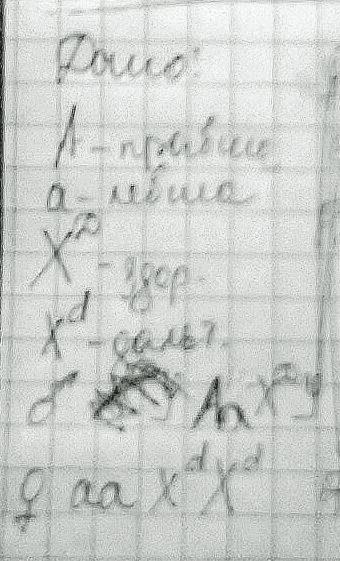 Дано:
A - правша
a - левша
X^D - здор.
X^d - дальт.
♂ Aa X^D y
♀ aa X^d X^d